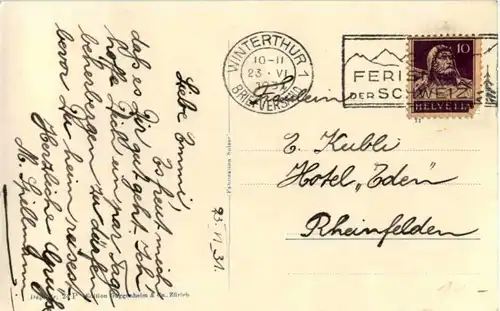 Liebe Emmi,
Es freut mich
daß es Dir gut geht. Ich
hoffe Dich ein paar Tage
beherbergen zu dürfen
bevor Du heim reisest.
Herzliche Grüße
M. Spillmann
23. VI. 31.
WINTERTHUR 1
10-11
23. VI.
BRIEFVERSAND
FERIEN
DER SCHWEIZ
10
HELVETIA
Fräulein
E. Kubli
Hotel „Eden“
Rheinfelden
Edition Guggenheim & Co., Zürich